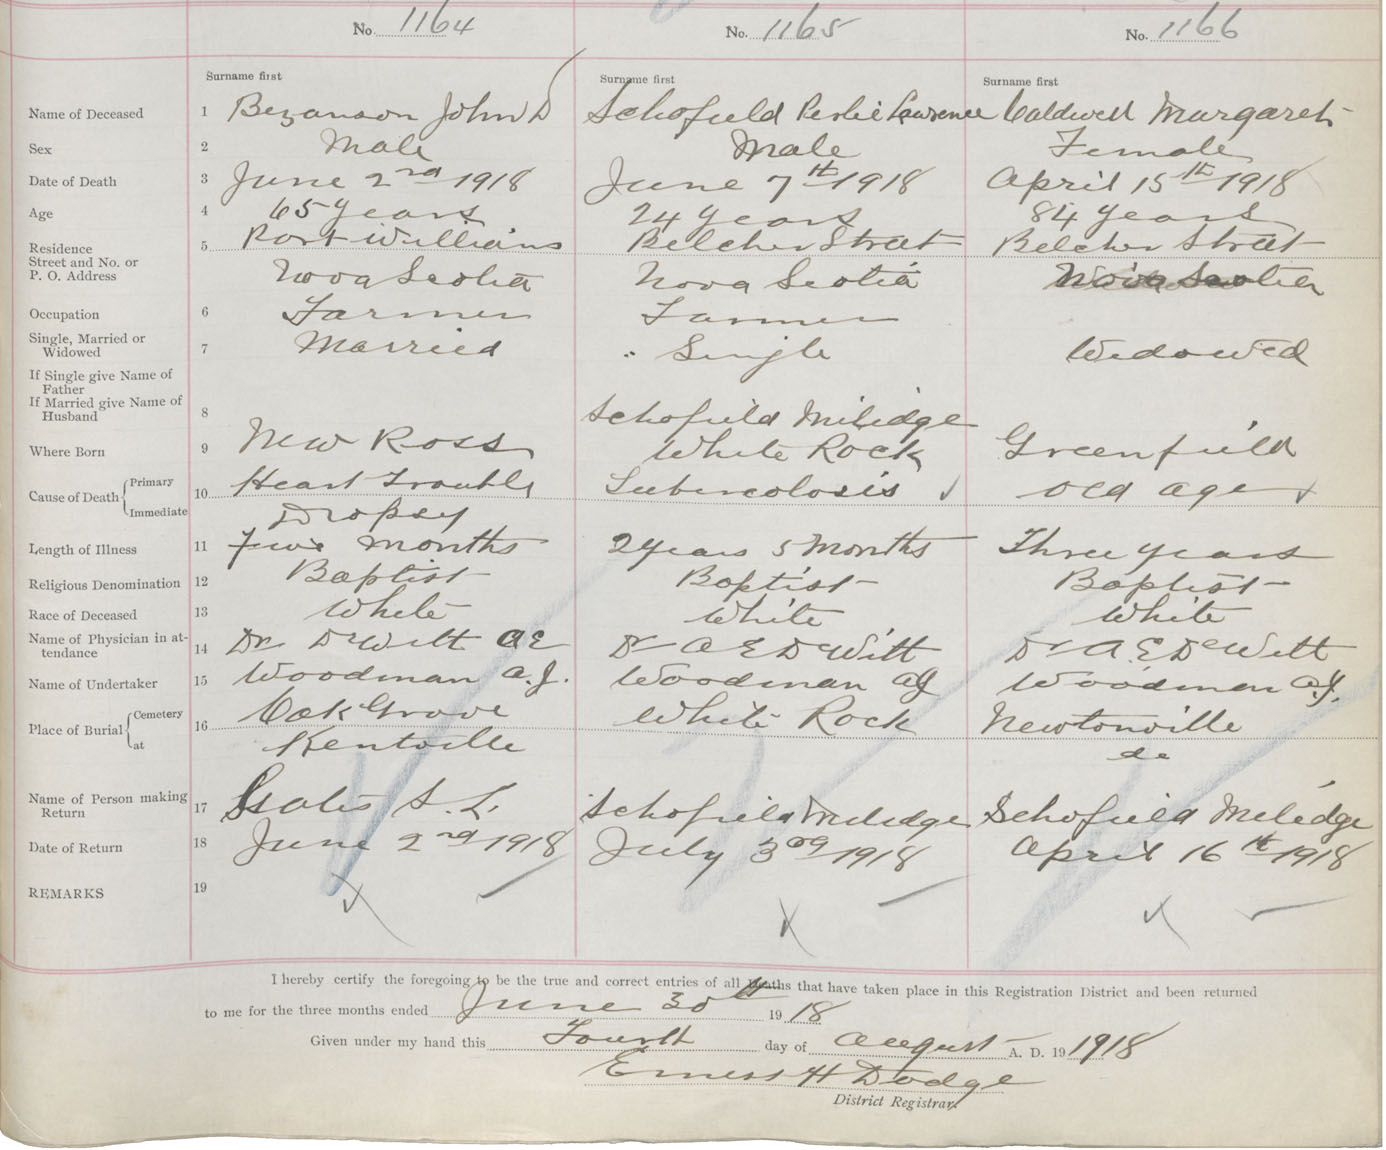 No. 1164 No. 1165 No. 1166
Surname first Surname first Surname first
Name of Deceased 1 Bezanson John D Schofield Perlie Lawrence Caldwell Margaret
Sex 2 Male Male Female
Date of Death 3 June 2nd 1918 June 7th 1918 April 15th 1918
Age 4 65 years 24 years 84 years
Residence 5 Port Williams Belcher Street Belcher Street
Street and No. or
P. O. Address Nova Scotia Nova Scotia Nova Scotia
Occupation 6 Farmer Farmer
Single, Married or
Widowed 7 Married Single Widowed
If Single give Name of
Father
If Married give Name of
Husband 8 Schofield Miledge
Where Born 9 New Ross White Rock Greenfield
Cause of Death Primary 10 Heart Trouble Tubercolosis old age
Immediate Dropsy
Length of Illness 11 months 2 years 5 Months Three years
Religious Denomination 12 Baptist Baptist Baptist
Race of Deceased 13 White White White
Name of Physician in at-
tendance 14 Dr DeWitt A E Dr A E DeWitt Dr A. E DeWitt
Name of Undertaker 15 Woodman A. J. Woodman A J Woodman A. J.
Place of Burial Cemetery 16 Oak Grove White Rock Newtonville
at Kentville do
Name of Person making
Return 17 S. L. Schofield Miledge Schofield Miledge
Date of Return 18 June 2nd 1918 July 3rd 1918 April 16th 1918
REMARKS 19
I hereby certify the foregoing to be the true and correct entries of all Deaths that have taken place in this Registration District and been returned
to me for the three months ended June 30th 1918
Given under my hand this Fourth day of August A. D. 19 1918
Ernest H Dodge
District Registrar.